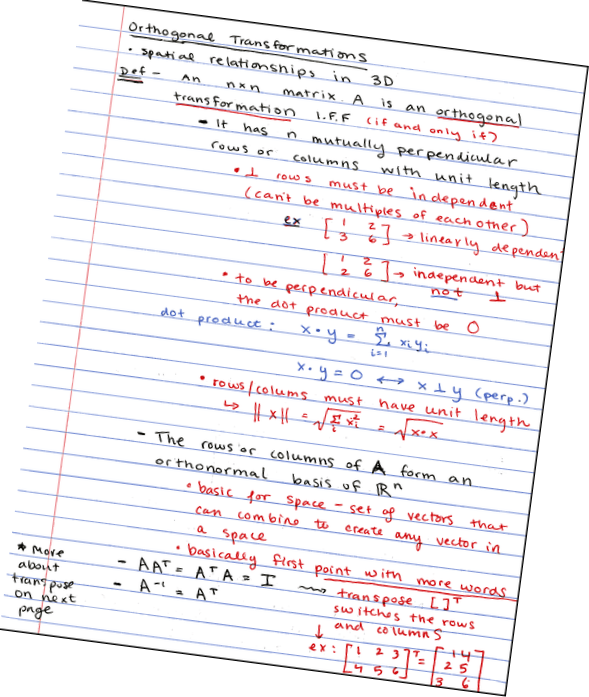 Orthogonal Transformations
• spatial relationships in 3D
Def - An n×n matrix A is an orthogonal
transformation I.F.F (if and only if)
- It has n mutually perpendicular
rows or columns with unit length
• ⊥ rows must be independent
(can't be multiples of each other)
ex [1 2
3 6] → linearly dependen
[1 2
2 6] → independent but
not ⊥
• to be perpendicular,
the dot product must be 0
dot product: x • y = n Σ i=1 xᵢyᵢ
x • y = 0 ↔ x ⊥ y (perp.)
• rows/colums must have unit length
- The rows or columns of A form an
orthonormal basis of ℝⁿ
• basic for space - set of vectors that
can combine to create any vector in
a space
• basically first point with more words
- AAᵀ = AᵀA = I
- A⁻¹ = Aᵀ
* More
about
transpose
on next
page
transpose [ ]ᵀ
switches the rows
↓ and columns
ex: [1 2 3
4 5 6]ᵀ = [1 4
2 5
3 6]